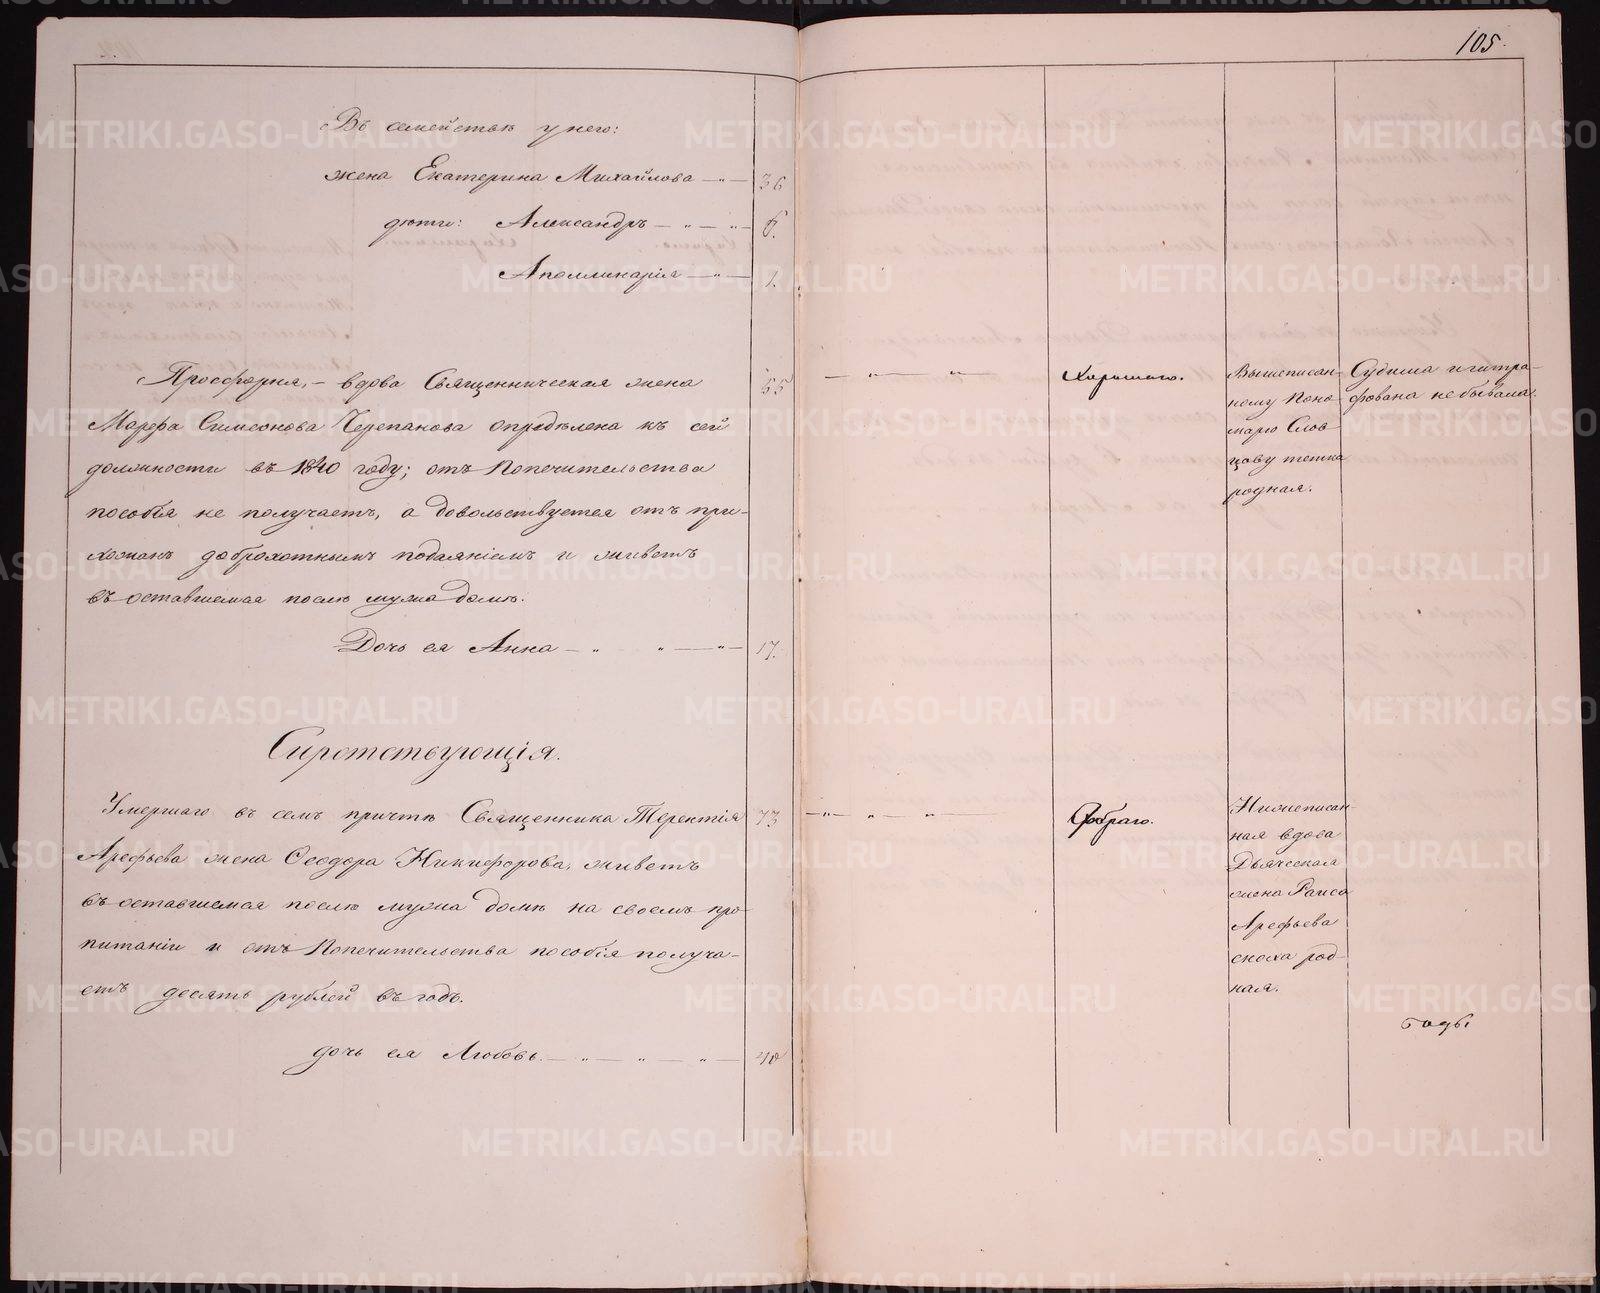 105.
Въ семействѣ у него:
жена Екатерина Михайлова — 36
дѣти: Александръ — 6.
Аполлинарія — 1.
Просфорня, – вдова Священническая жена 55
Марфа Симеонова Черепанова опредѣлена къ сей
должности въ 1840 году; отъ Попечительства
пособія не получаетъ, а довольствуется отъ при-
хожанъ доброхотнымъ подаяніемъ и живетъ
въ оставшемся послѣ мужа домѣ.
Дочь ея Анна — 17.
Хорошаго.
Вышеписан-
ному Поно-
марю Слов-
цову тетка
родная.
Судима и штра-
фована не бывала.
Сиротствующія.
Умершаго въ семъ причтѣ Священника Терентія 73
Арефьева жена Ѳеодора Никифорова, живетъ
въ оставшемся послѣ мужа домѣ на своемъ про-
питаніи и отъ Попечительства пособія получа-
етъ десять рублей въ годъ.
дочь ея Любовь. — 40
Добраго.
Нижеписан-
ная вдова
Дьяческая
жена Раиса
Арефьева
сноха род-
ная.
METRIKI.GASO-URAL.RU